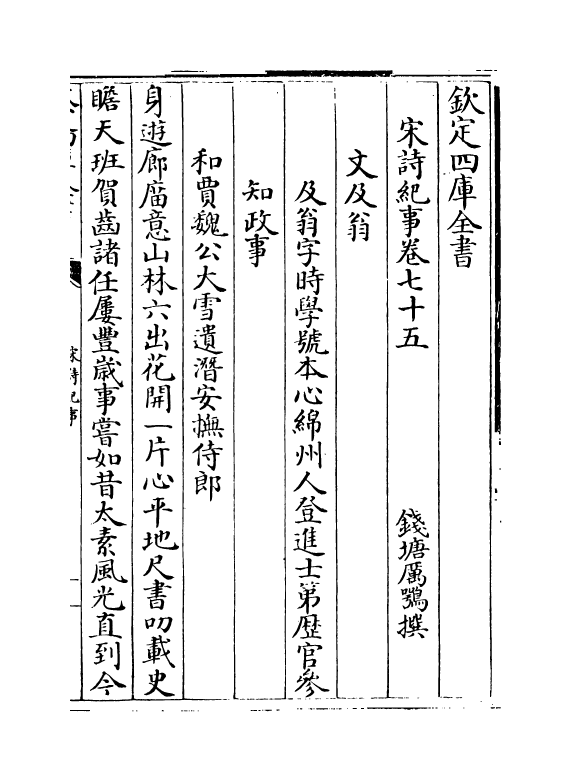 欽定四庫全書
宋詩紀事卷七十五
錢塘厲鶚撰
文及翁
及翁字時學號本心綿州人登進士第歷官參
知政事
和賈魏公大雪遺潛安撫侍郎
身遊廊廟意山林六出花開一片心平地尺書叨載史
瞻天班賀齒諸任屢豐歲事嘗如昔太素風光直到今
宋詩紀事